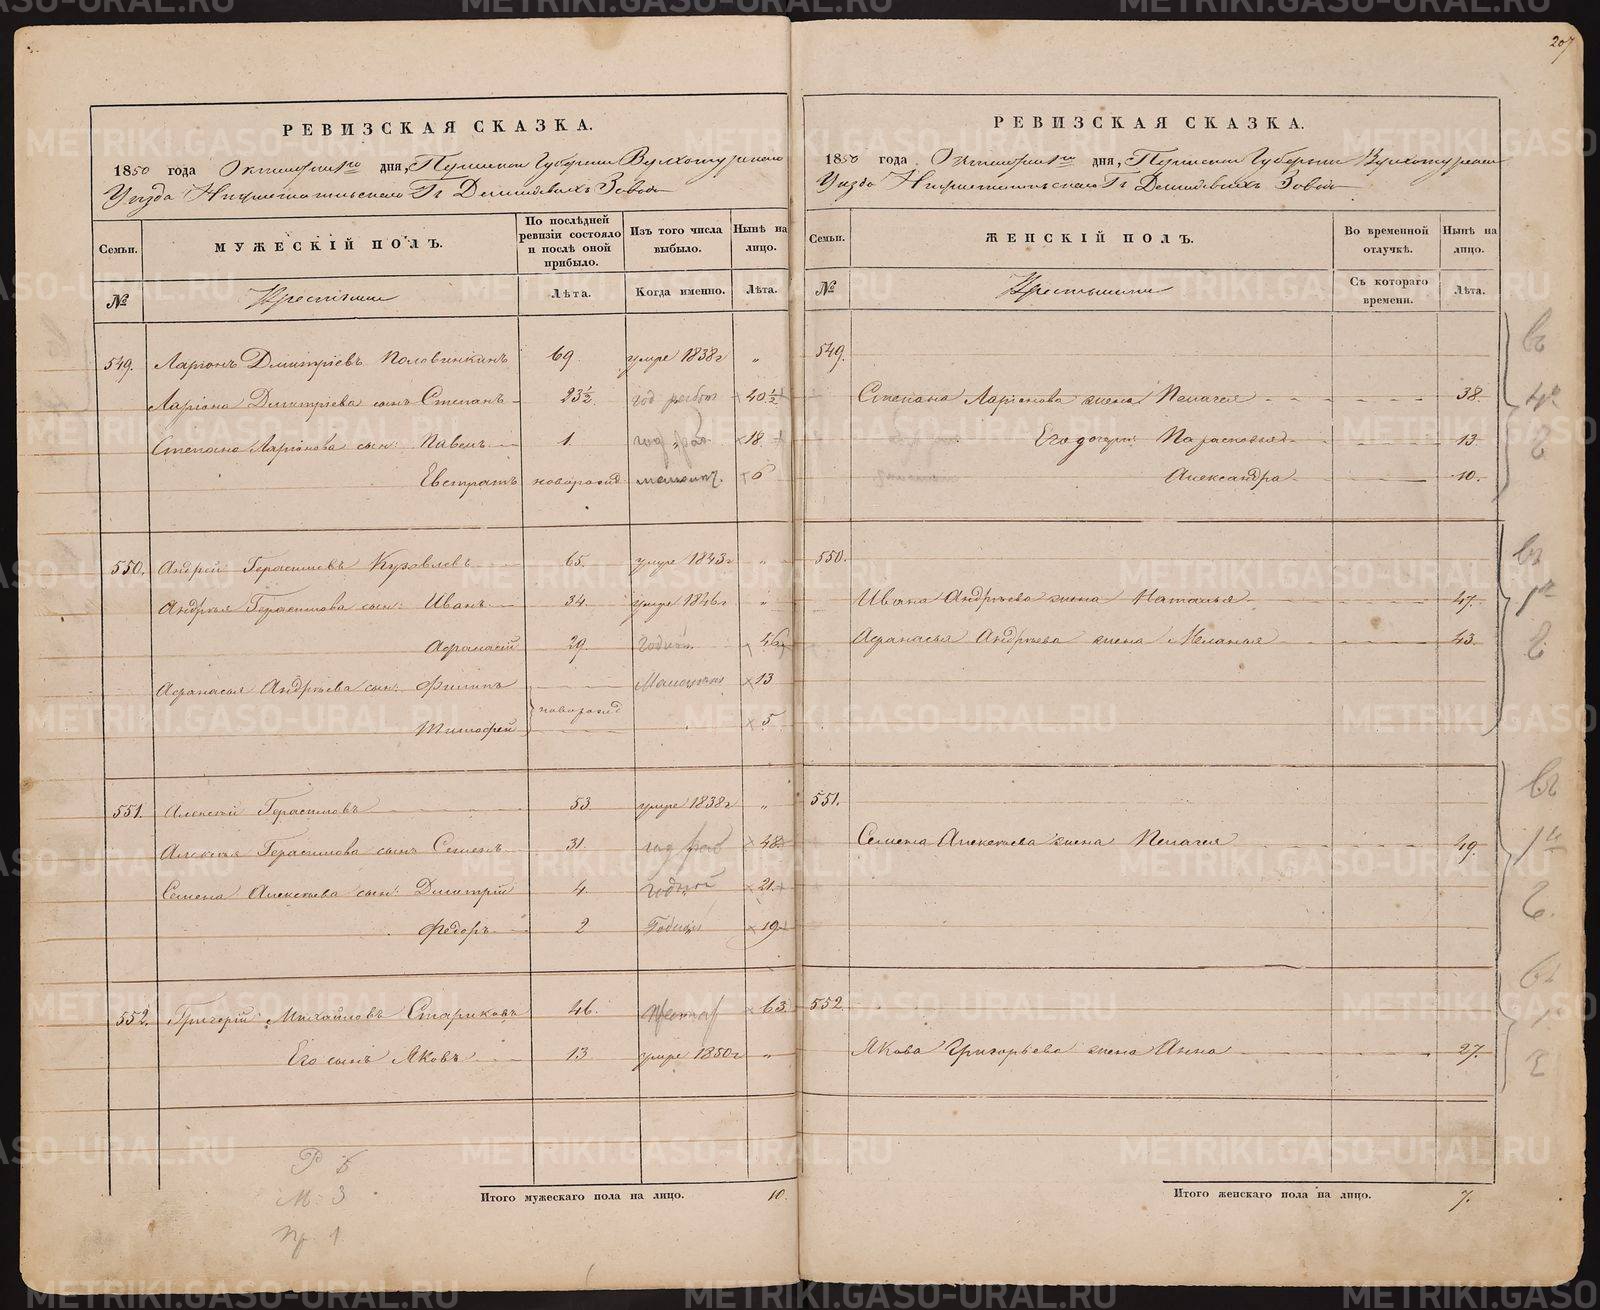 207
РЕВИЗСКАЯ СКАЗКА.
1850 года Октября дня, Пермской Губернии Верхотурскаго
Уѣзда Нижнетагильскаго Гг Демидовыхъ Завода
Семьи.
МУЖЕСКІЙ ПОЛЪ.
По послѣдней ревизіи состояло и послѣ оной прибыло.
Изъ того числа выбыло.
Нынѣ на лицо.
№
Крестьяне
Лѣта.
Когда именно.
Лѣта.
549. Ларіонъ Дмитріевъ Половинкинъ 69. умре 1838г „
Ларіона Дмитріева сынъ Степанъ 23½ год работ 40½
Степана Ларіонова сын: Павелъ 1. год раб 18
Евстратъ новорожд малолѣт. 6
550. Андрей Герасимовъ Журавлевъ 65. умре 1843г „
Андрѣя Герасимова сын: Иванъ 34 умре 1846г „
Афанасій 29 Годный 46
Афанасья Андрѣева сын: Филипъ новорожд 13
Тимофей 5
551. Алексѣй Герасимовъ 53 умре 1838г „
Алексѣя Герасимова сынъ Семенъ 31. год раб 48
Семена Алексѣева сын: Дмитрій 4. годной 21
Федоръ 2 Годный 19
552. Григорій Михайловъ Стариковъ 46. 63
Его сынъ Яковъ 13 умре 1850г „
Итого мужескаго пола на лицо. 10.
Р 6
М. 3
Пр. 1
РЕВИЗСКАЯ СКАЗКА.
1850 года Октября дня, Пермской Губерніи Верхотурскаго
Уѣзда Нижнетагильскаго Гг Демидовыхъ Завода
Семьи.
ЖЕНСКІЙ ПОЛЪ.
Во временной отлучкѣ.
Нынѣ на лицо.
№
Крестьянки
Съ котораго времени.
Лѣта.
549.
Степана Ларіонова жена Пелагея 38.
Его дочери: Парасковья 13
Александра 10.
550.
Ивана Андрѣева жена Наталья 47.
Афанасья Андрѣева жена Меланья 43.
551.
Семена Алексѣева жена Пелагея 49.
552
Якова Григорьева жена Анна 27.
Итого женскаго пола на лицо. 7.
METRIKI.GASO-URAL.RU